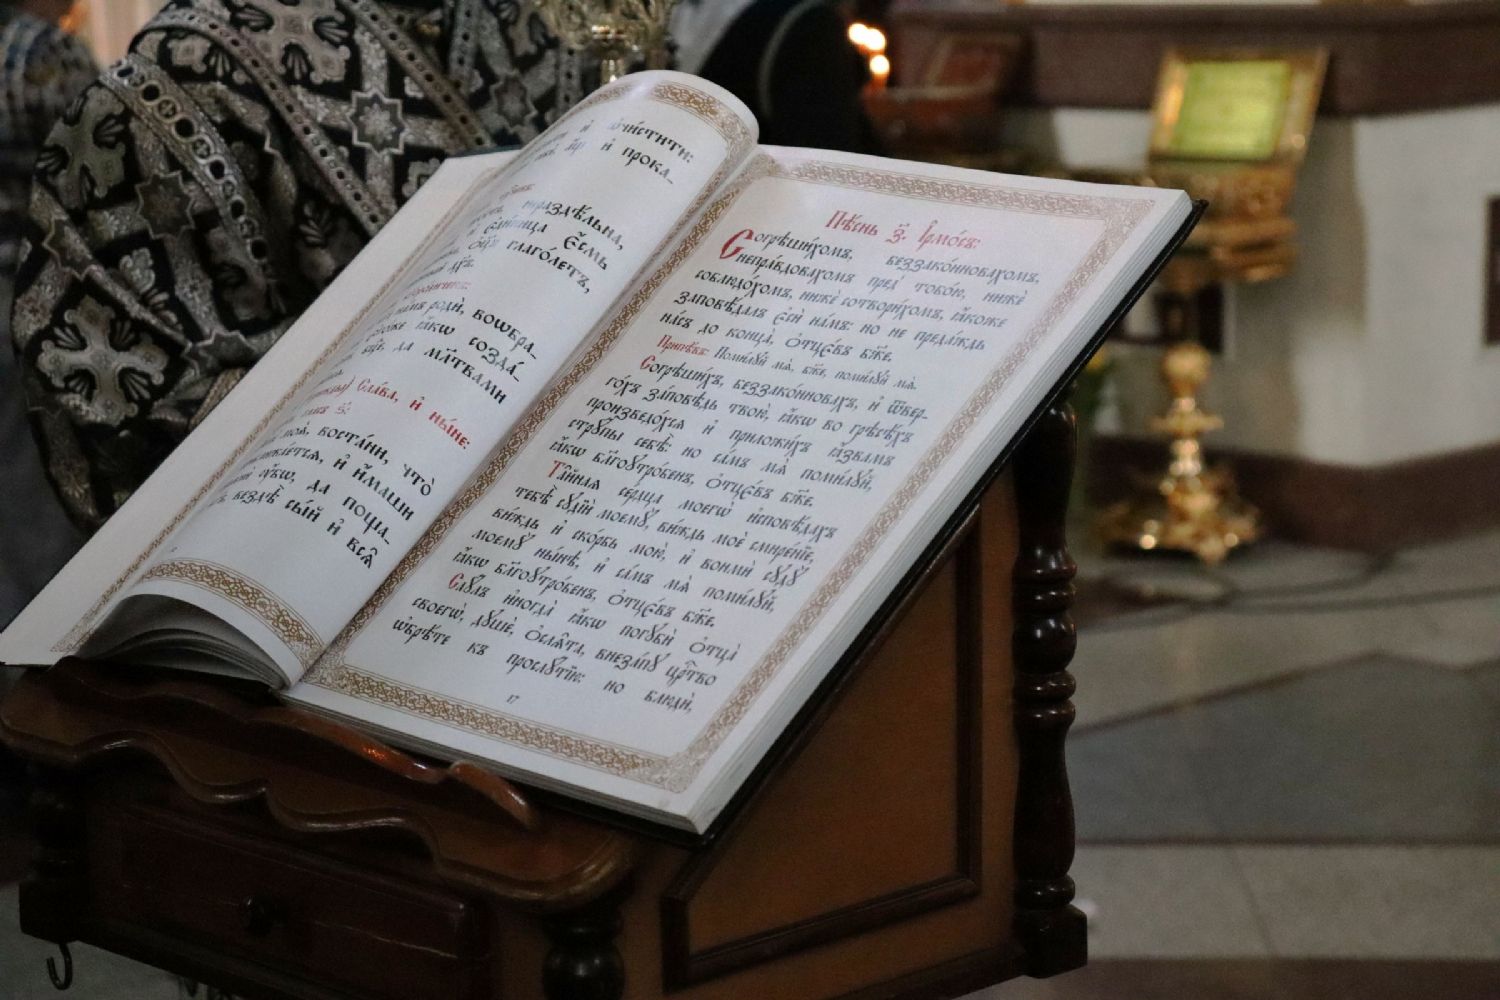 ѡ҆чи́стити:
и҆ прока_
нераздѣ́льна,
Є҆ди́ница Є҆́смь
глаго́летъ,
ды́й дх҃ъ.
на́мъ роди̑, воѡбра_
ꙗ҆́кѡ созда́_
да мл҃твами
Сла́ва, и҆ ны́нѣ:
моѧ̀, воста́ни, что̀
и҆ и҆́маши
ᲂу҆̀бѡ, да поща_
вездѣ̀ сы́й и҆ всѧ̑
Пѣ́снь з҃. І҆рмо́съ:
Согрѣши́хомъ, беззако́нновахомъ,
непра́вдовахомъ пред̾ тобо́ю, нижѐ
соблюдо́хомъ, нижѐ сотвори́хомъ, ꙗ҆́коже
заповѣ́далъ є҆сѝ на́мъ: но не преда́ждь
на́съ до конца̀, ѻ҆тцє́въ бж҃е.
Припѣ́въ: Поми́лꙋй мѧ̀, бж҃е, поми́лꙋй мѧ̀.
Согрѣши́хъ, беззако́нновахъ, и҆ ѿве́р_
го́хъ за́повѣдь твою̀, ꙗ҆́кѡ во грѣсѣ́хъ
произведо́хсѧ и҆ приложи́хъ ꙗ҆́звамъ
стрꙋ́пы себѣ̀: но са́мъ мѧ̀ поми́лꙋй,
ꙗ҆́кѡ бл҃гоꙋтро́бенъ, ѻ҆тцє́въ бж҃е.
Та̑йнаѧ се́рдца моегѡ̀ и҆сповѣ́дахъ
тебѣ̀ сꙋдїѝ моемꙋ̀, ви́ждь моѐ смире́нїе,
ви́ждь и҆ ско́рбь мою̀, и҆ вонмѝ сꙋдꙋ̀
моемꙋ̀ ны́нѣ, и҆ са́мъ мѧ̀ поми́лꙋй,
ꙗ҆́кѡ бл҃гоꙋтро́бенъ, ѻ҆тцє́въ бж҃е.
Саꙋ́лъ и҆ногда̀ ꙗ҆́кѡ погꙋбѝ ѻ҆тца̀
своегѡ̀, дꙋшѐ, ѻ҆слѧ̑та, внеза́пꙋ црⷭ҇тво
ѡ҆брѣ́те къ прослꙋ́тїю: но блюдѝ,
17